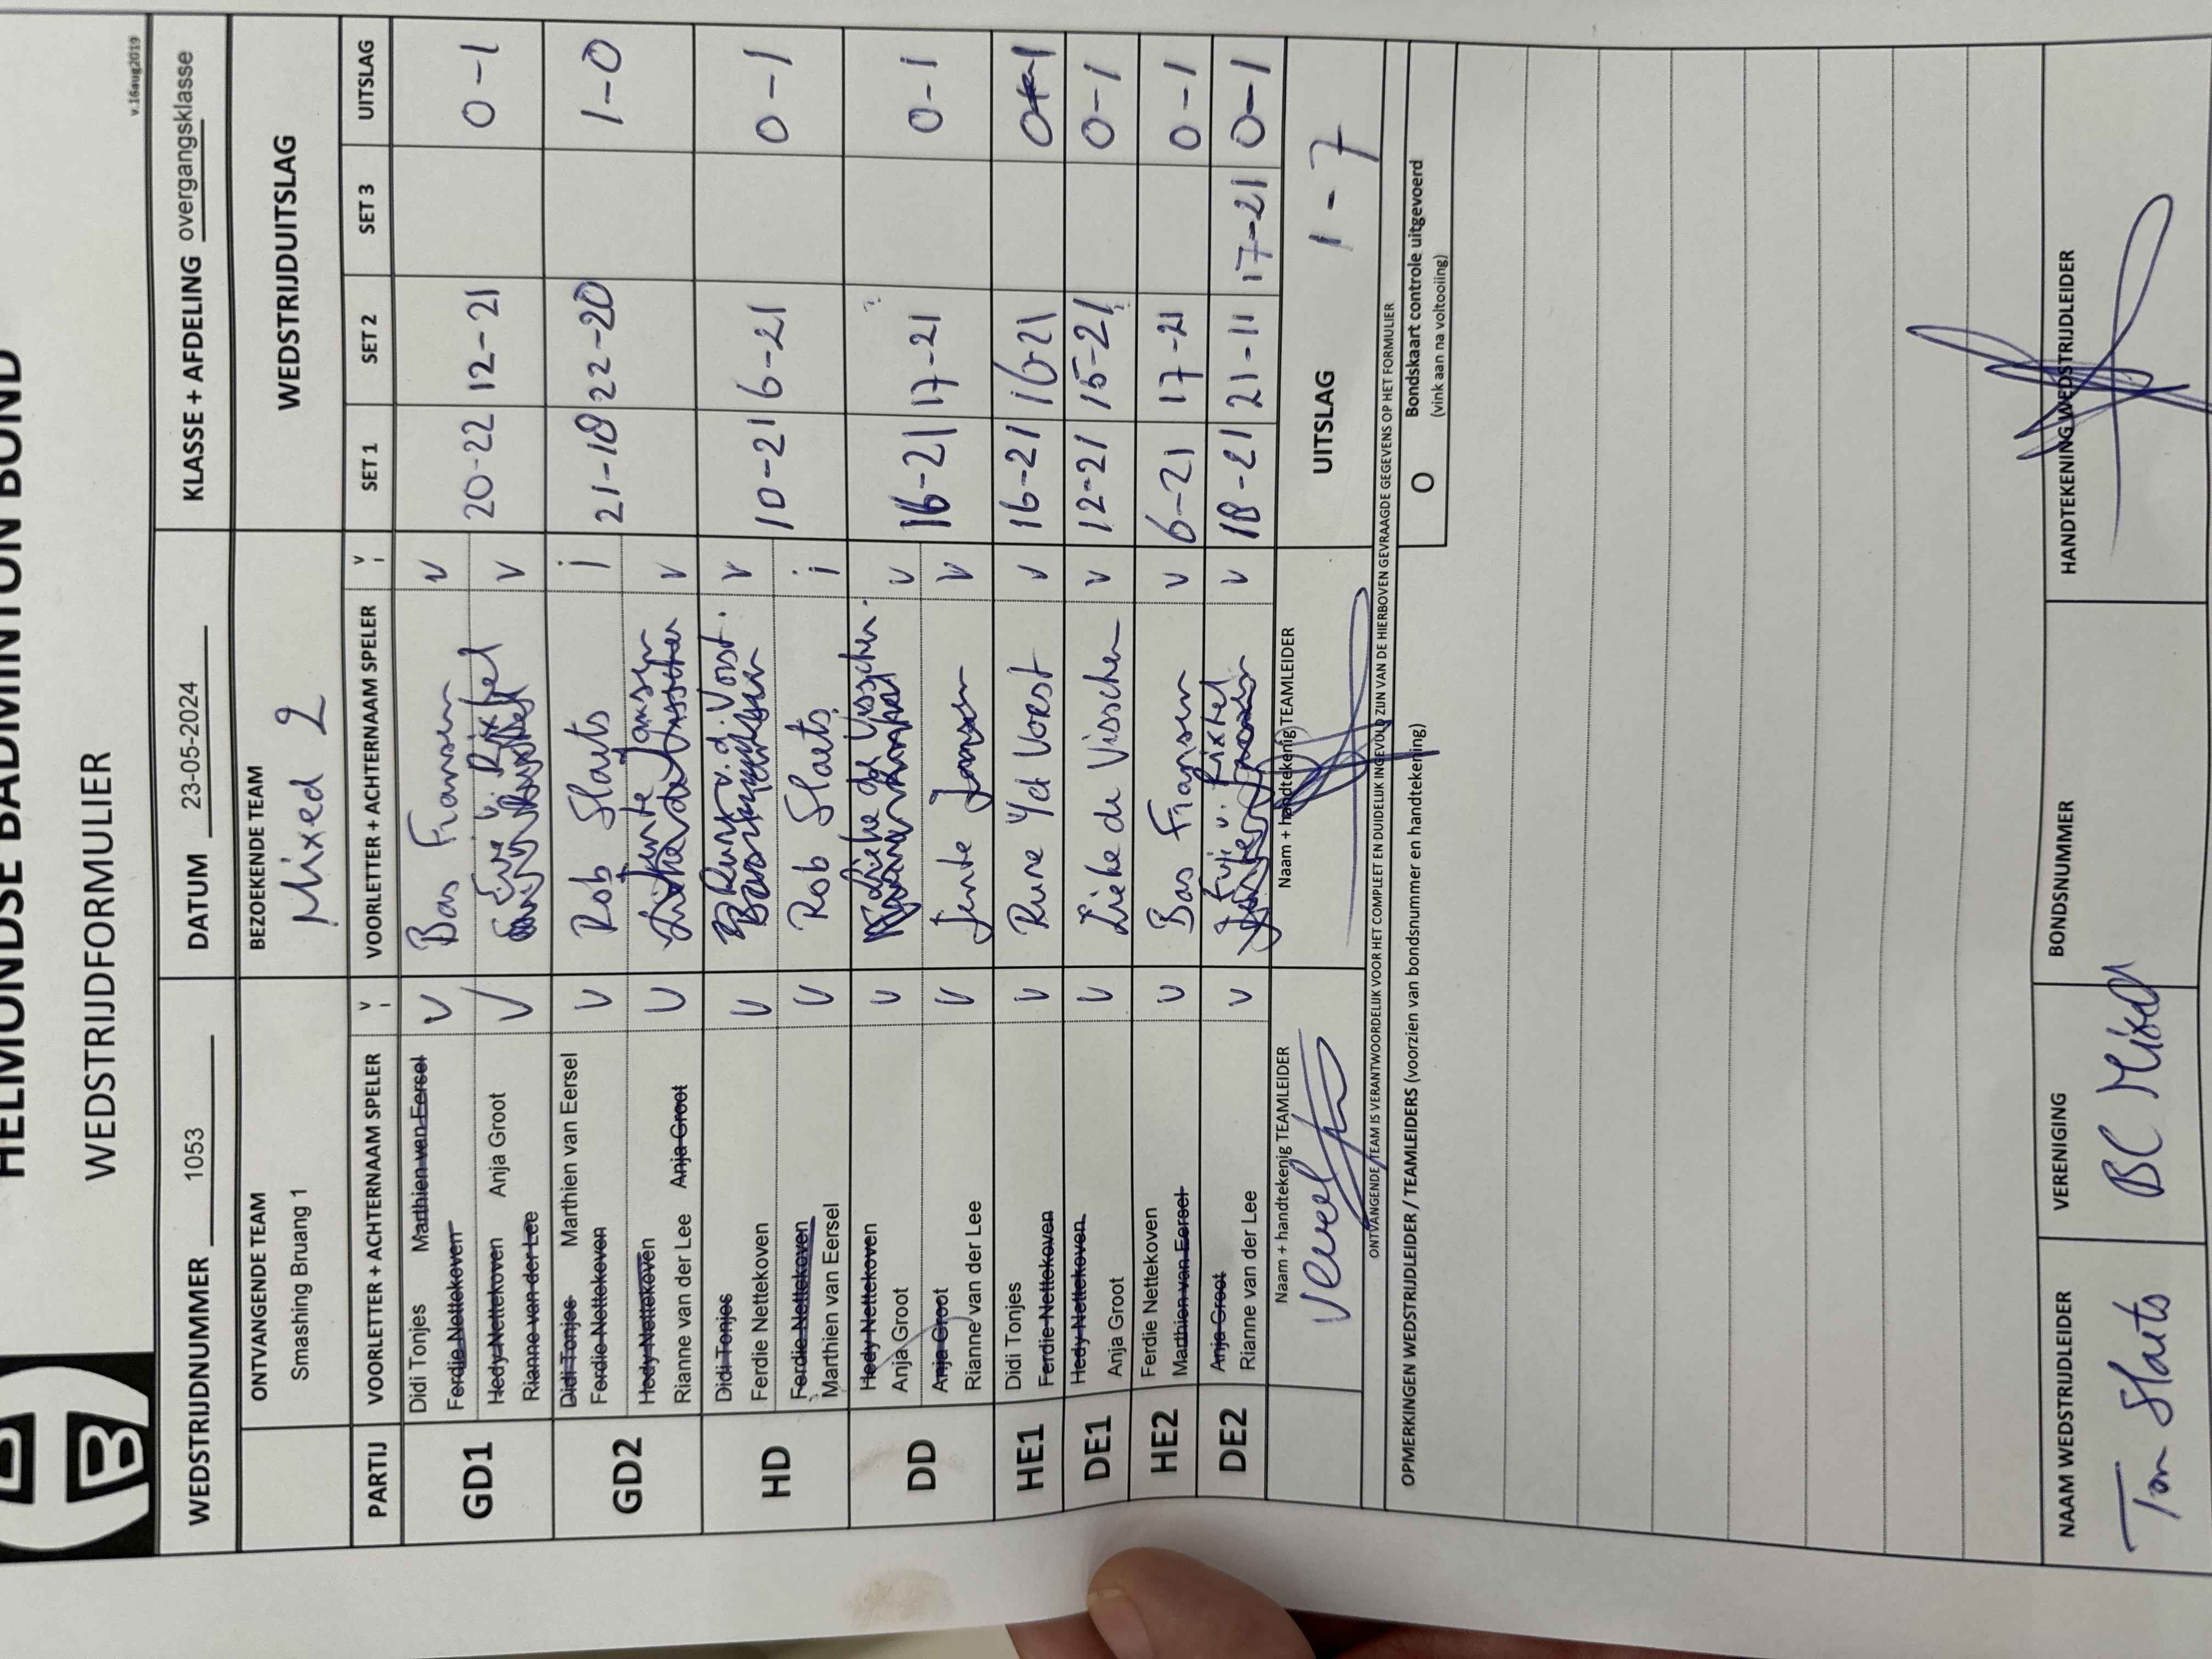 HELMONDSE BADMINTON BOND
WEDSTRIJDFORMULIER
v.16aug2019
WEDSTRIJDNUMMER 1053 DATUM 23-05-2024 KLASSE + AFDELING overgangsklasse
ONTVANGENDE TEAM BEZOEKENDE TEAM WEDSTRIJDUITSLAG
Smashing Bruang 1 Mixed 2
PARTIJ VOORLETTER + ACHTERNAAM SPELER V I VOORLETTER + ACHTERNAAM SPELER V I SET 1 SET 2 SET 3 UITSLAG
Didi Tonjes Marthien van Eersel
Ferdie Nettekoven V Bas Fransen V
GD1 20-22 12-21 0-1
Hedy Nettekoven Anja Groot
Rianne van der Lee V Evi v. Rixtel V
Didi Tonjes Marthien van Eersel
Ferdie Nettekoven V Rob Slaets i
GD2 21-18 22-20 1-0
Hedy Nettekoven
Rianne van der Lee Anja Groot V Jente Jansen V
Didi Tonjes
Ferdie Nettekoven V Rune v.d. Vorst. V
HD 10-21 6-21 0-1
Ferdie Nettekoven
Marthien van Eersel V Rob Slaets i
Hedy Nettekoven
Anja Groot V Lieke de Visscher. V
DD 16-21 17-21 0-1
Anja Groot
Rianne van der Lee V Jente Jansen V
HE1 Didi Tonjes V Rune v/d Vorst V 16-21 16-21 0-1
Ferdie Nettekoven
DE1 Hedy Nettekoven V Lieke de Visscher V 12-21 15-21 0-1
Anja Groot
HE2 Ferdie Nettekoven V Bas Fransen V 6-21 17-21 0-1
Marthien van Eersel
DE2 Anja Groot V Evi v. Rixtel V 18-21 21-11 17-21 0-1
Rianne van der Lee
Naam + handtekenig TEAMLEIDER Naam + handtekenig TEAMLEIDER UITSLAG 1-7
ONTVANGENDE TEAM IS VERANTWOORDELIJK VOOR HET COMPLEET EN DUIDELIJK INGEVULD ZIJN VAN DE HIERBOVEN GEVRAAGDE GEGEVENS OP HET FORMULIER
OPMERKINGEN WEDSTRIJDLEIDER / TEAMLEIDERS (voorzien van bondsnummer en handtekening)
O Bondskaart controle uitgevoerd
(vink aan na voltooiing)
NAAM WEDSTRIJDLEIDER VERENIGING BONDSNUMMER HANDTEKENING WEDSTRIJDLEIDER
Ton Slaets BC Mixed